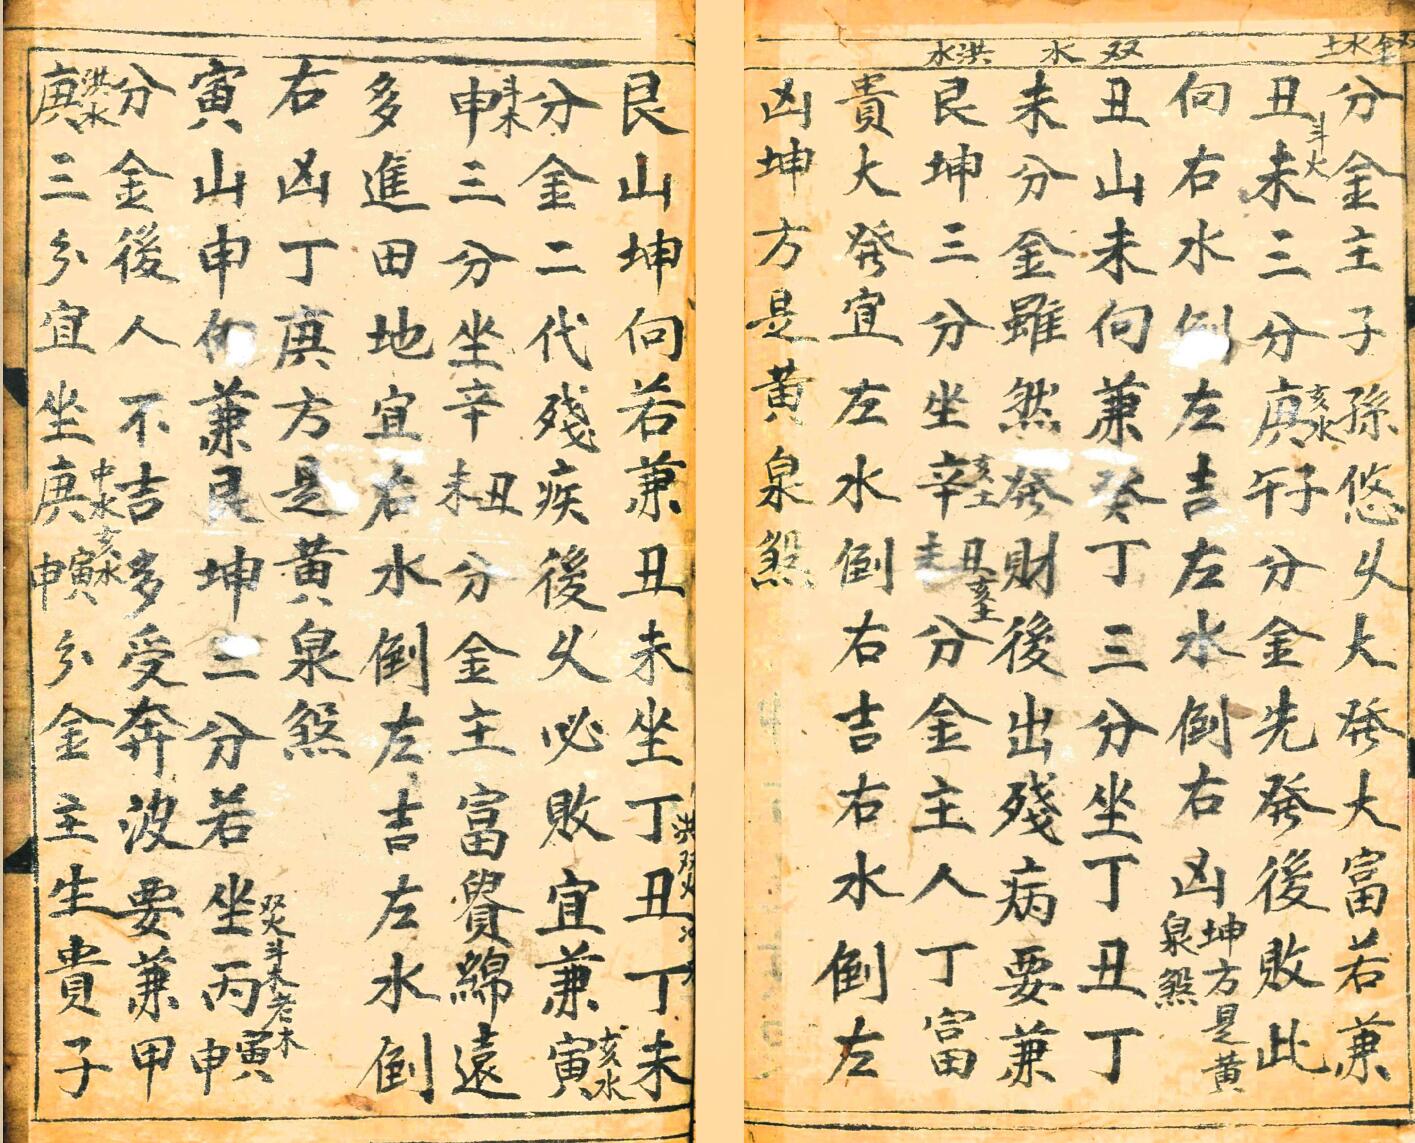 双金水土
双水 洪水
分金主子孫悠久大發大富若兼
丑未三分庚午子分金先發後敗此
斗火
亥水
向右水倒左吉左水倒右凶坤方是黄泉煞
丑山未向兼癸丁三分坐丁丑丁
未分金雖然發財後出殘病要兼
艮坤三分坐辛丑未分金主人丁富
亥土
亥土
貴大發宜左水倒右吉右水倒左
凶坤方是黄泉煞
艮山坤向若兼丑未坐丁丑丁未
洪双火
分金二代殘疾後久必敗宜兼寅
亥水
申三分坐辛丑未分金主富貴綿遠
斗木
多進田地宜右水倒左吉左水倒
右凶丁庚方是黄泉煞
寅山申向兼艮坤三分若坐丙寅申
双火斗木老木
分金後人不吉多受奔波要兼甲
庚三分宜坐庚寅申分金主生貴子
洪水
中水亥水